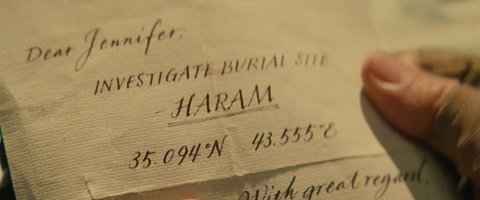 Dear Jennifer,
INVESTIGATE BURIAL SITE
HARAM
35.094°N 43.555°E
With great regard,